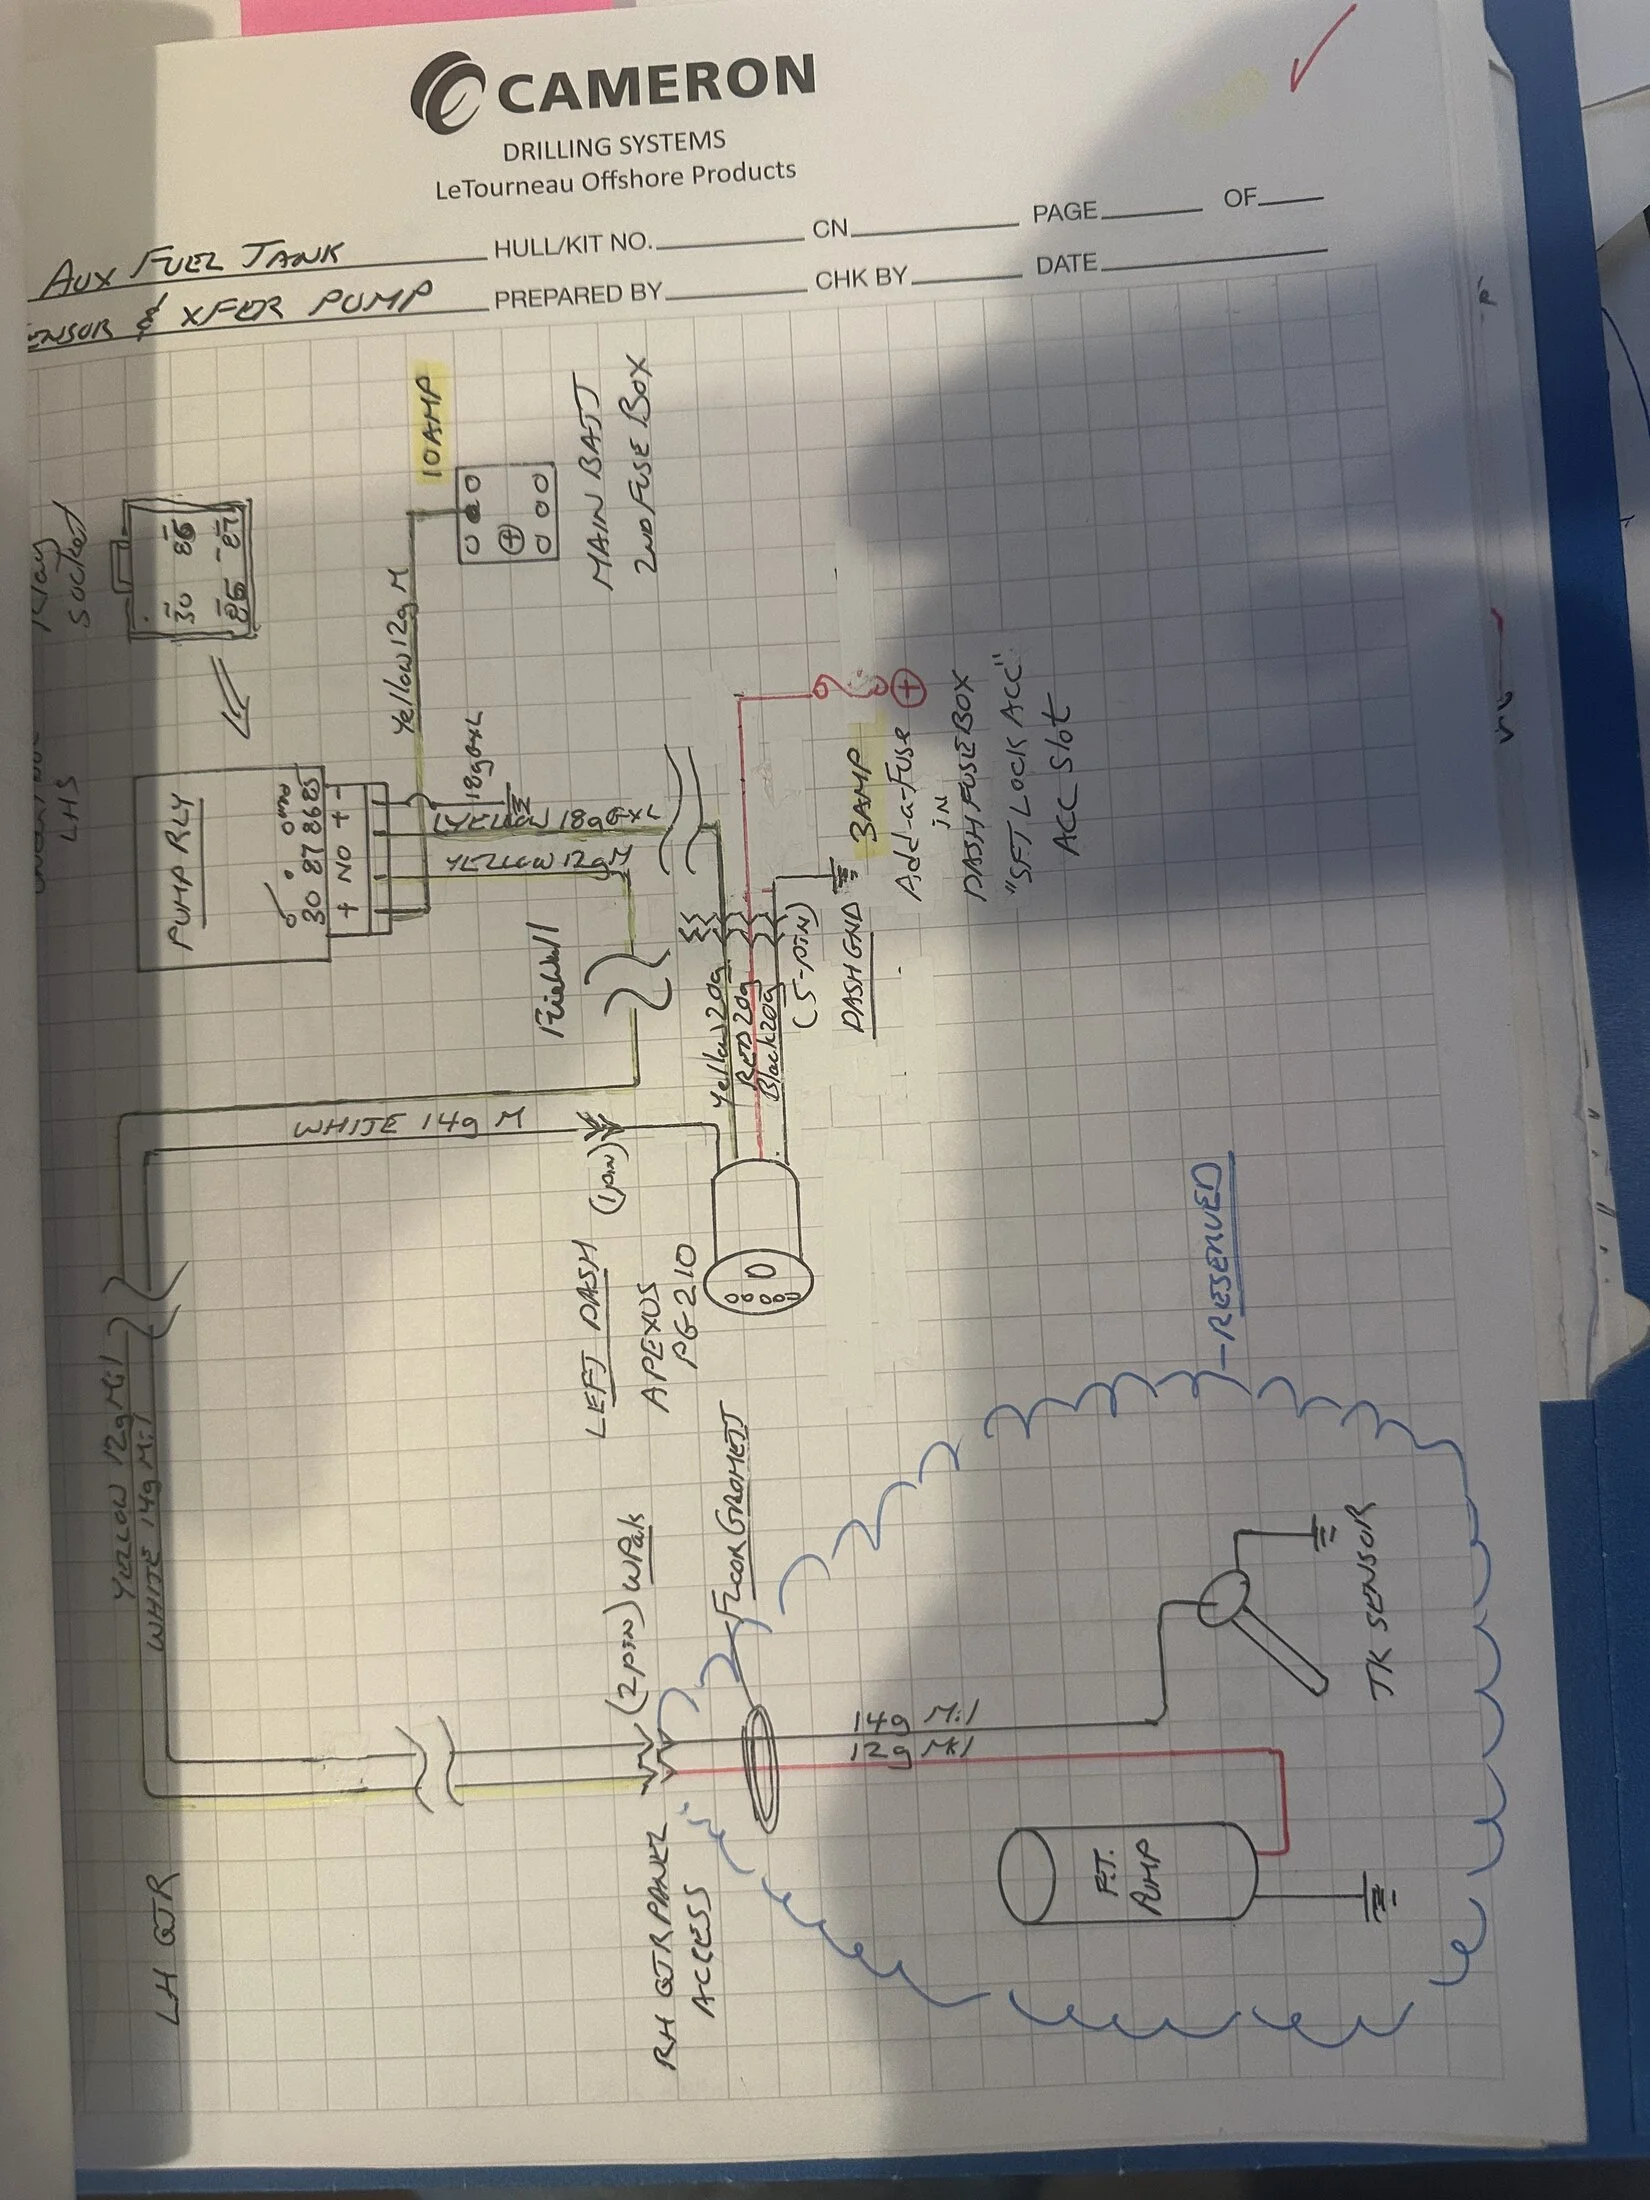 CAMERON
DRILLING SYSTEMS
LeTourneau Offshore Products
AUX FUEL TANK
HULL/KIT NO.
CN
PAGE
OF
ENSOR & XFER PUMP
PREPARED BY
CHK BY
DATE
Relay
Socket
30 86
85 87
LHS
PUMP RLY
30 87 86 85
+ NO + -
10AMP
Yellow 12g M
MAIN BATT
2ND FUSE BOX
18g GXL
YELLOW 18g GXL
YELLOW 12g M
Firewall
Yellow 20g
RED 20g
Black 20g
(5-pin)
DASH GND
3AMP
Add-a-Fuse
in
DASH FUSE BOX
"SFT LOCK ACC"
ACC Slot
WHITE 14g M
LEFT DASH
(1pin)
APEXUS
PG-210
YELLOW 12g Mil
WHITE 14g Mil
LH QTR
(2pin) WPak
FLOOR GROMETT
RH QTR PANEL
ACCESS
14g Mil
12g Mil
F.T.
PUMP
TK SENSOR
RESERVED